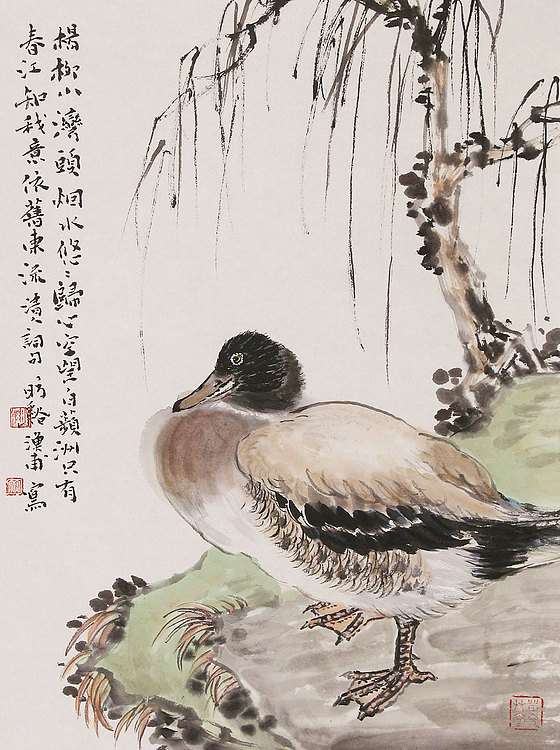 楊柳小灣頭烟水悠〻歸心空望白蘋洲只有
春江知我意依舊東流 詞 谿漁甫寫